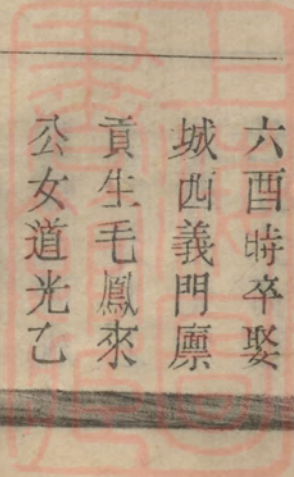 六酉時卒娶
城西義門廪
貢生毛鳳來
公女道光乙